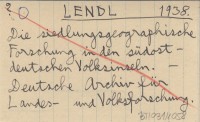 ? O LENDL 1938.
Die siedlungsgeographische
Forschung in den südost-
deutschen Volksinseln. –
Deutsche Archiv für
Landes- und Volksforschung.